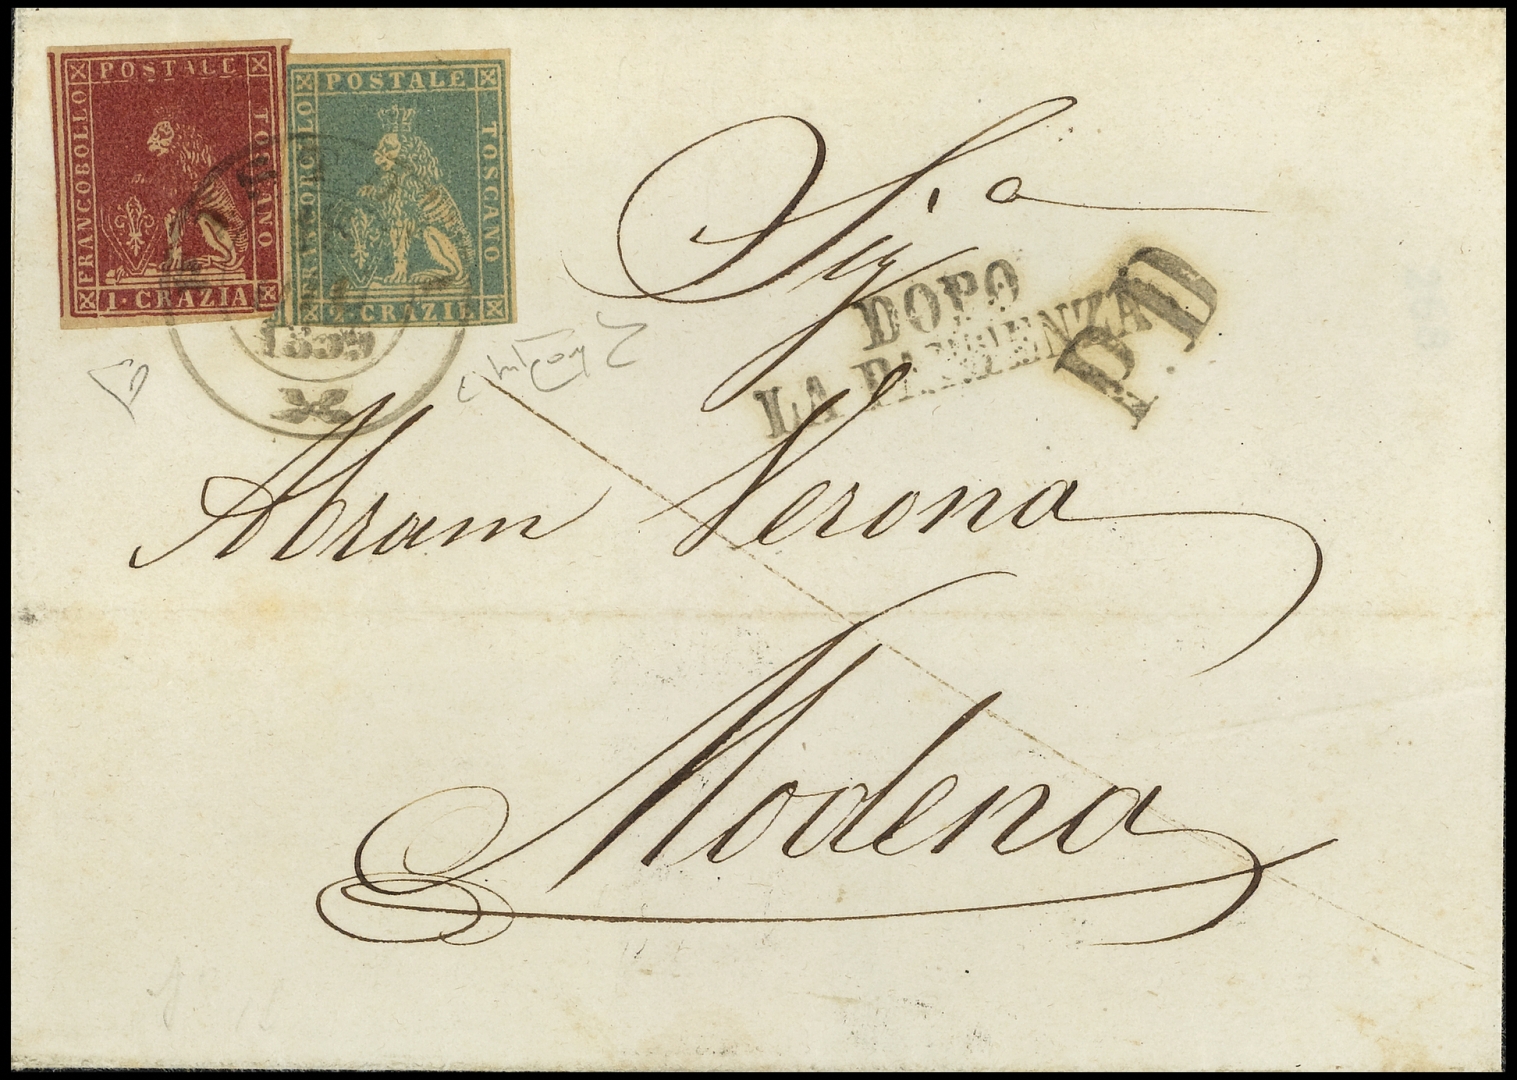 POSTALE
FRANCOBOLLO
TOSCANO
1·CRAZIA
POSTALE
FRANCOBOLLO
TOSCANO
2·CRAZIE
1859
Sig.a
DOPO
LA PARTENZA
P.D.
Abram Verona
Modena